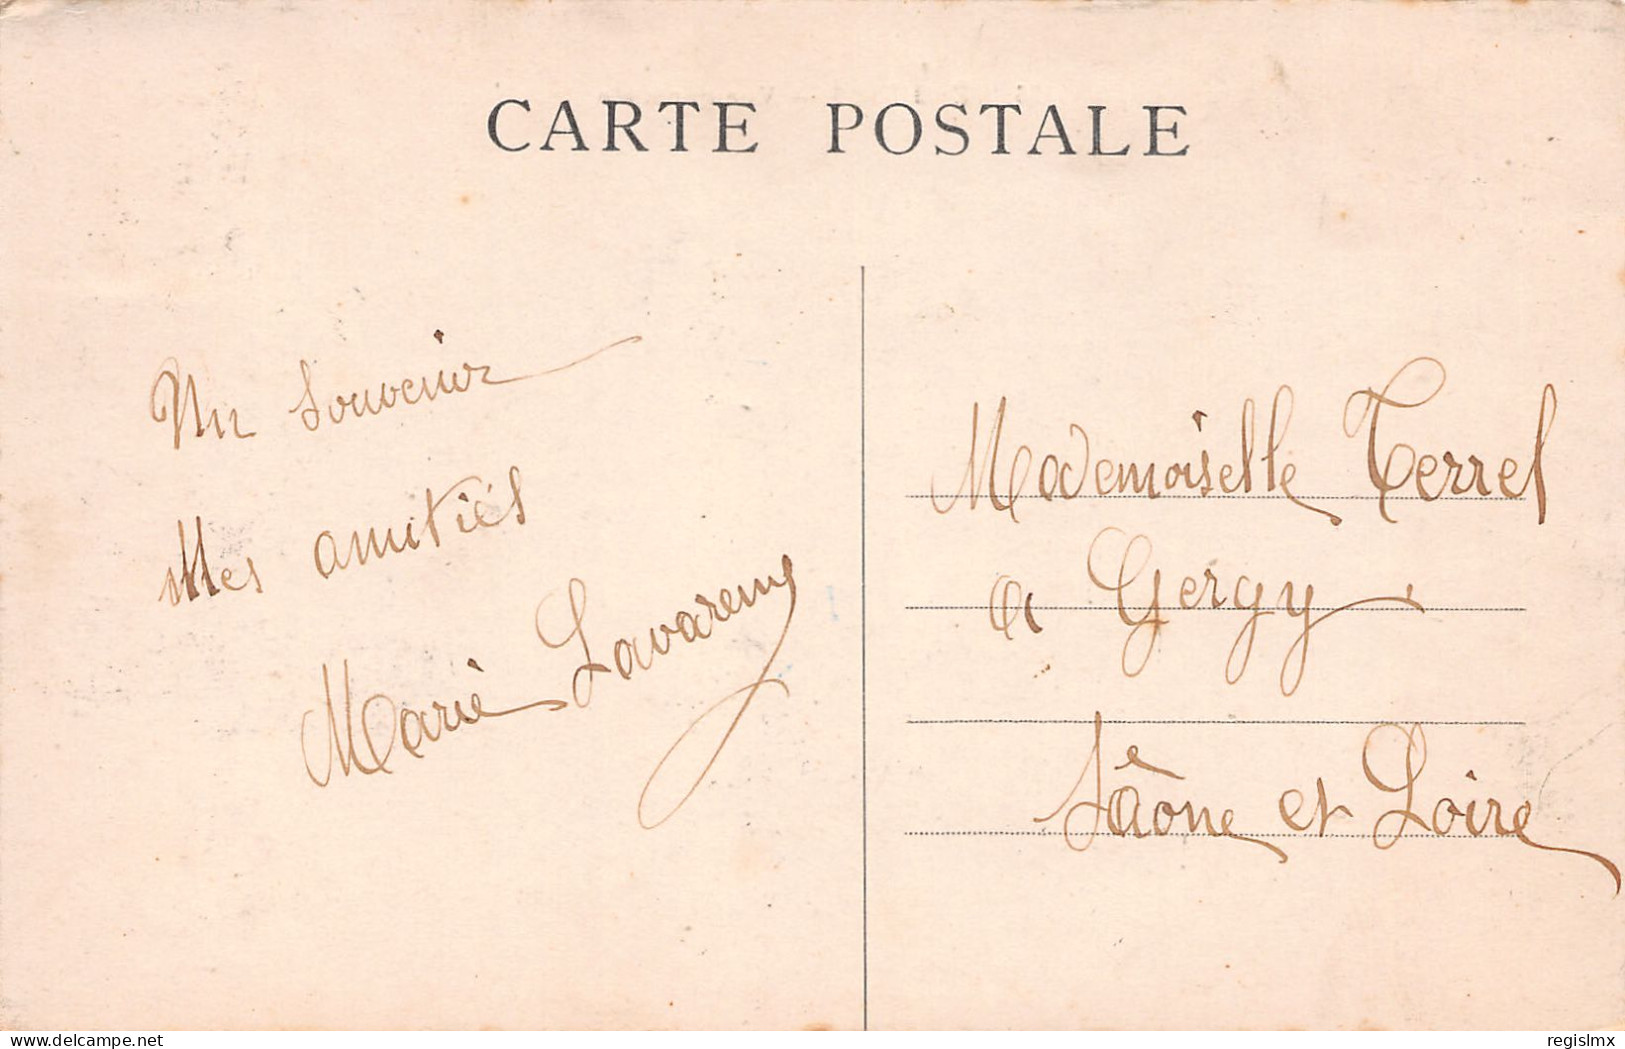 CARTE POSTALE
Un souvenir
Mes amitiés
Marie
Mademoiselle Terrel
a Gergy
Saône et Loire
delcampe.net
regislmx